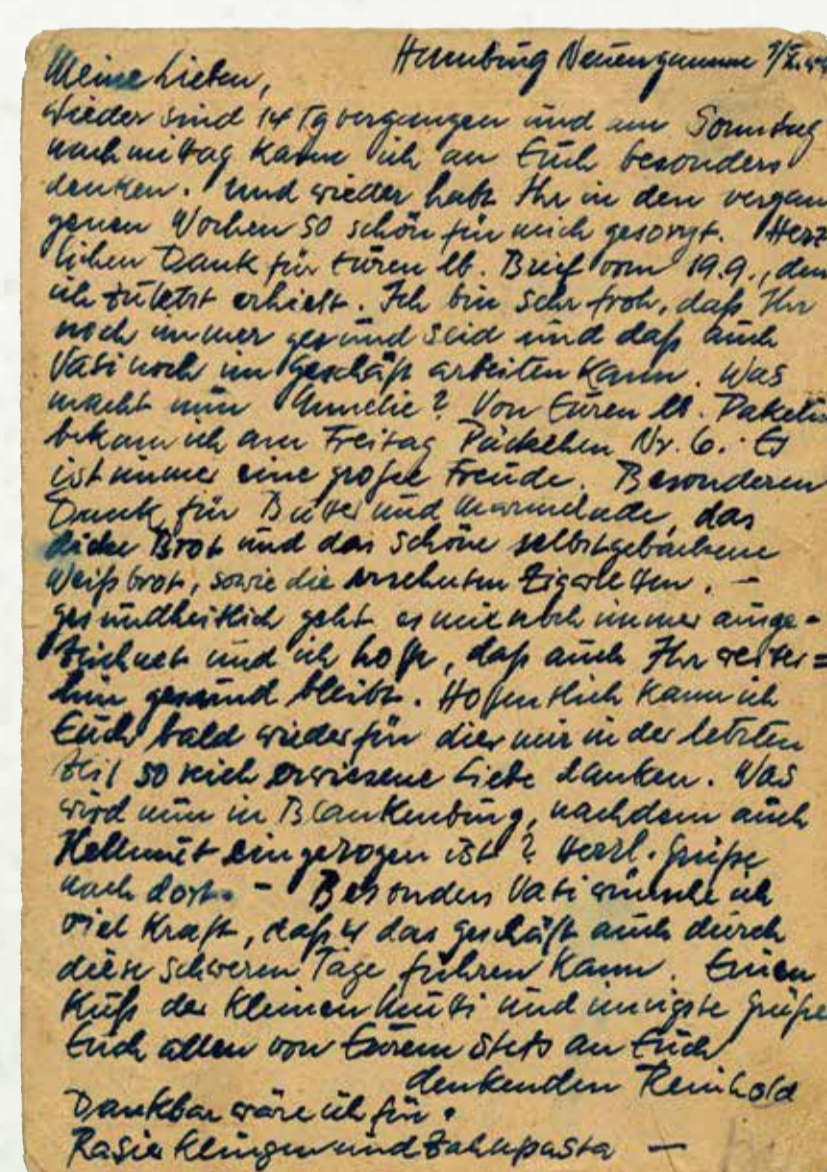 Hamburg Neuengamme
Meine Lieben,
wieder sind 14 Tg vergangen und am Sonntag
nachmittag kann ich an Euch besonders
denken. Und wieder habt Ihr in den vergan
genen Wochen so schön für mich gesorgt. Herz
lichen Dank für Euren lb. Brief vom 19.9., den
ich zuletzt erhielt. Ich bin sehr froh, daß Ihr
noch immer gesund seid und daß auch
Vati noch im Geschäft arbeiten kann. Was
macht nun ? Von Euren lb. Paketen
bekam ich am Freitag Päckchen Nr. 6. Es
ist immer eine große Freude. Besonderen
Dank für Butter und Marmelade, das
dicke Brot und das schöne selbstgebackene
Weißbrot, sowie die ersehnten Zigaretten. –
gesundheitlich geht es mir noch immer ausge-
zeichnet und ich hoffe, daß auch Ihr weiter=
hin gesund bleibt. Hoffentlich kann ich
Euch bald wieder für die mir in der letzten
Zeit so reich erwiesene Liebe danken. Was
wird nun in Blankenburg, nachdem auch
Hellmut eingezogen ist? Herzl. Grüße
nach dort. – Besonders Vati wünsche ich
viel Kraft, daß er das Geschäft auch durch
diese schweren Tage führen kann. Einen
Kuß der kleinen Mutti und innigste Grüße
Euch allen von Eurem stets an Euch
denkenden Reinhold
Dankbar wäre ich für:
Rasierklingen und Zahnpasta –